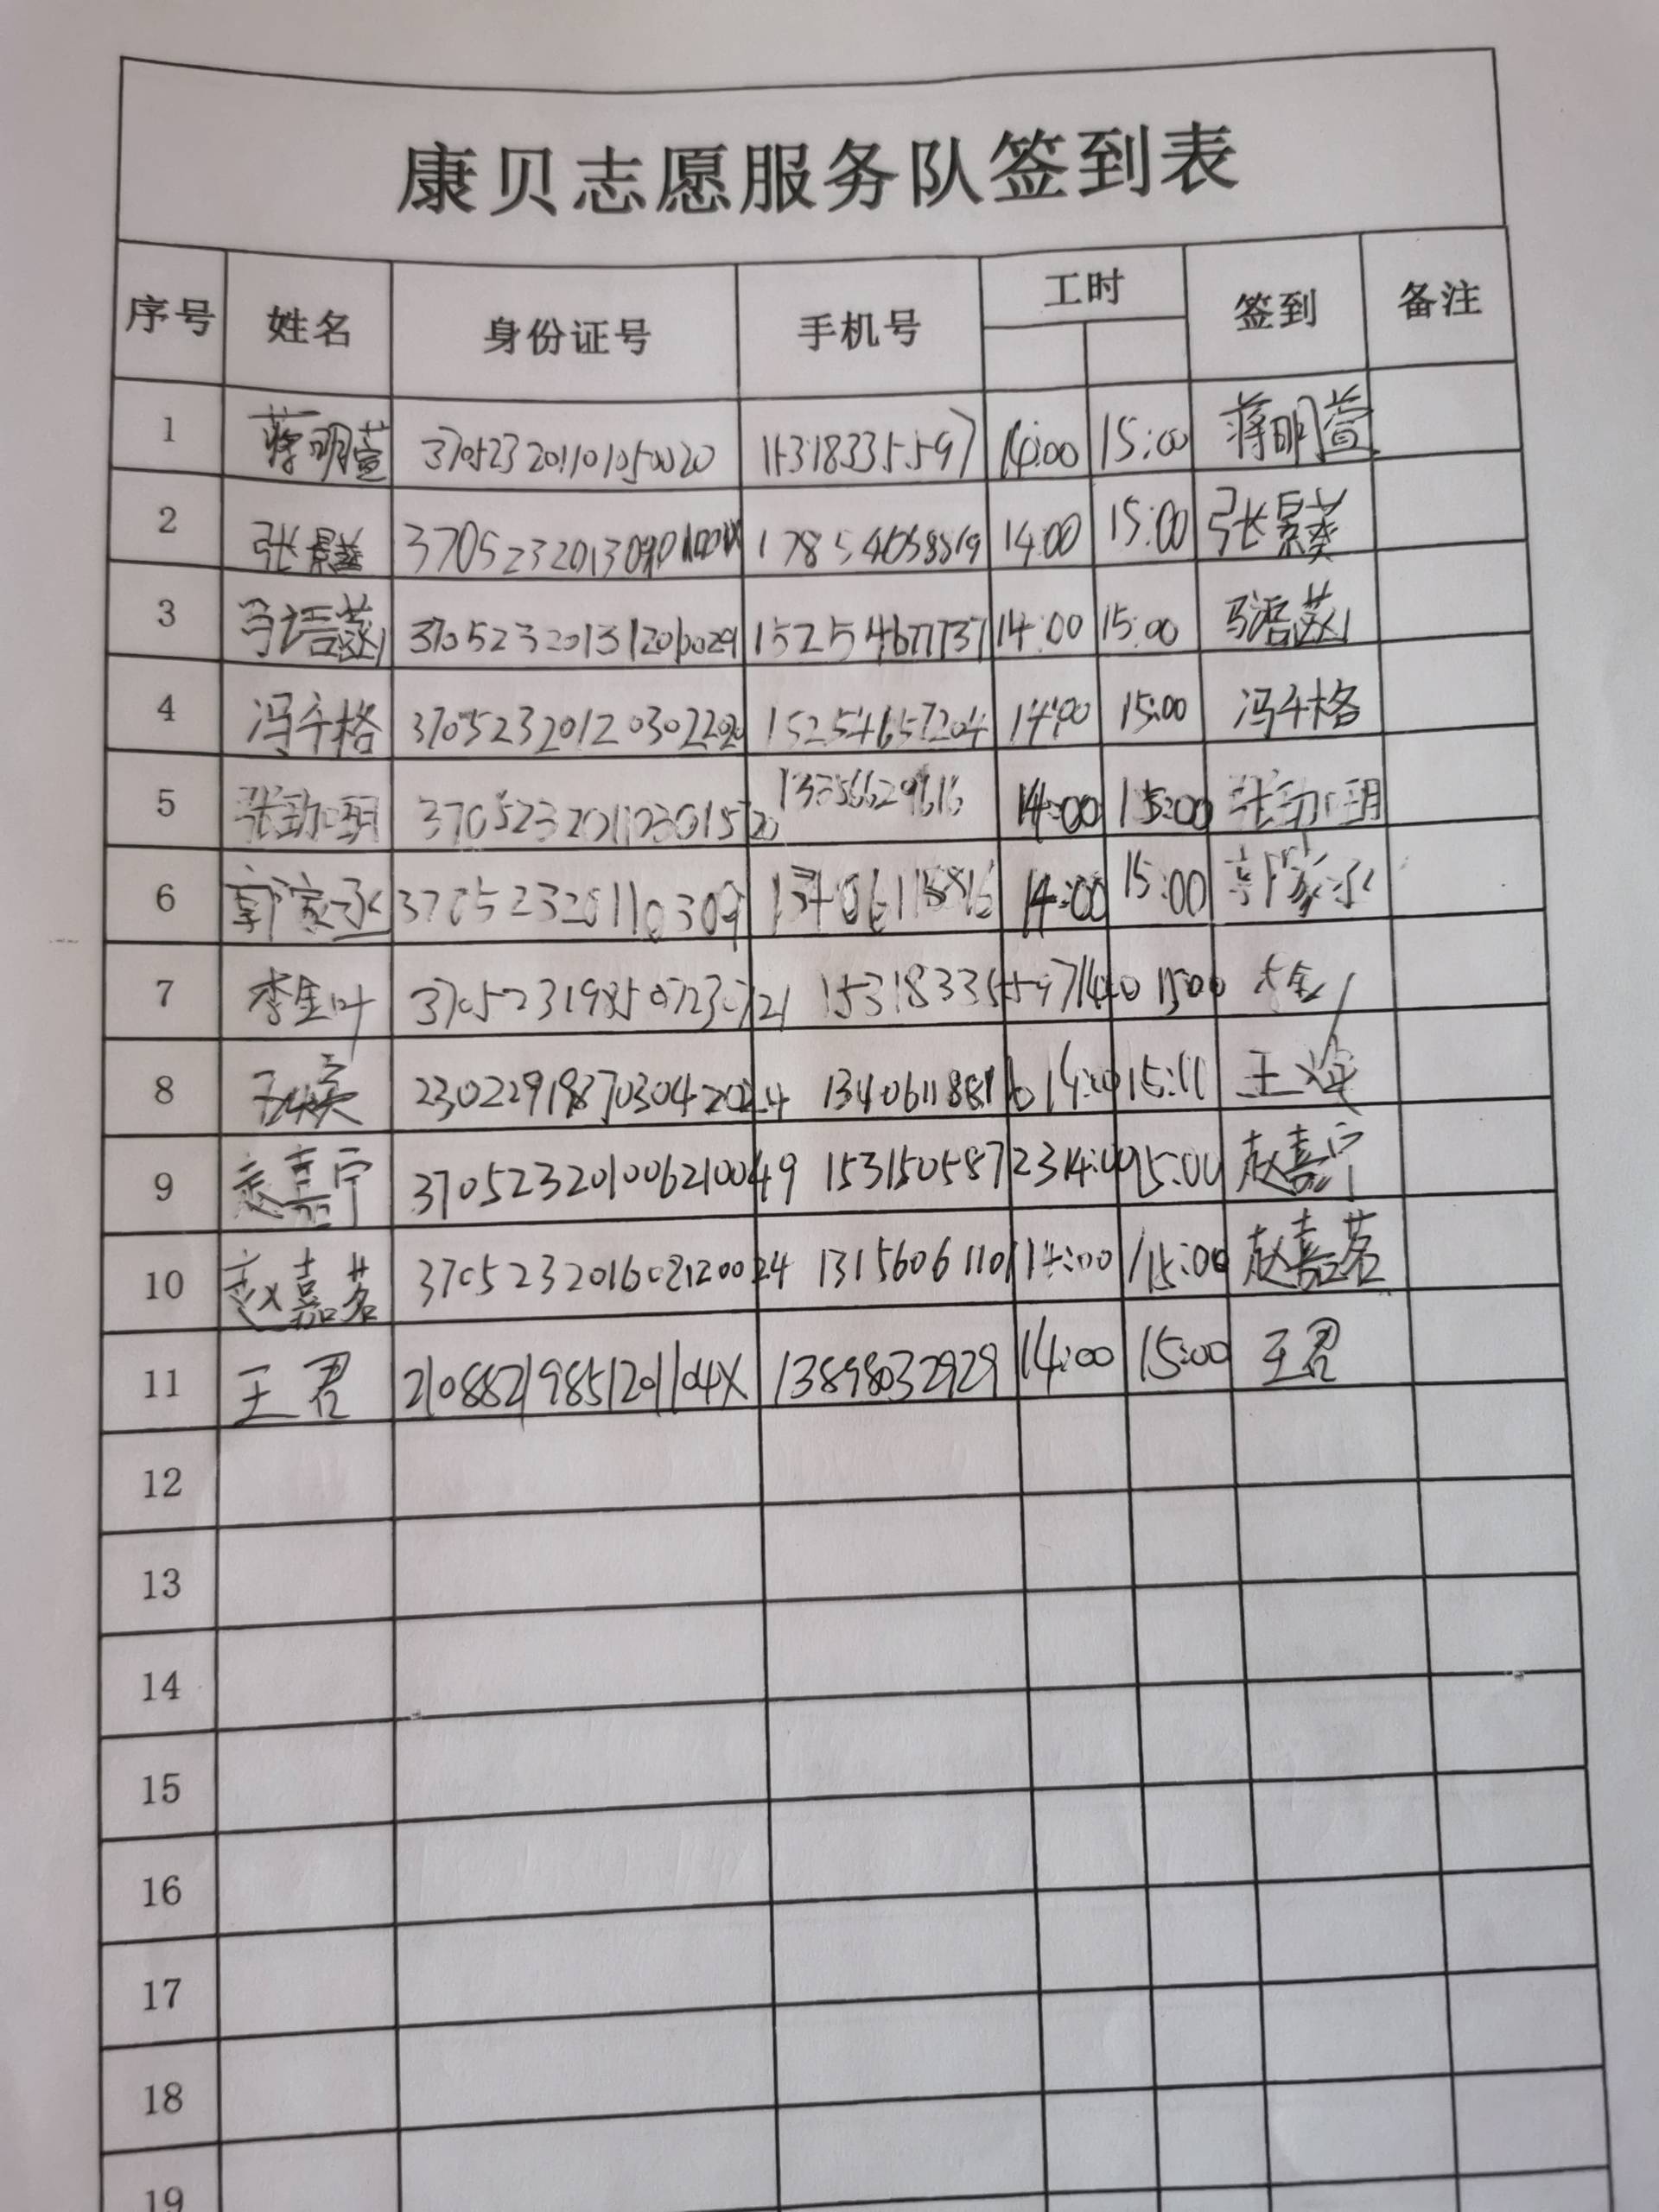 康贝志愿服务队签到表
序号 姓名 身份证号 手机号 工时 签到 备注
1 蒋明萱 370523201101050020 15318335597 14:00 15:00 蒋明萱
2 张景 17854658819 14:00 15:00 张景
3 马语菡 370523201312060029 15254677737 14:00 15:00 马语菡
4 冯千格 15254657204 14:00 15:00 冯千格
5 张劲玥 370523201103015720 14:00 15:00 张劲玥
6 郭家丞 37052320110309 13406118816 14:00 15:00 郭家丞
7 李金叶 15318335597 14:00 15:00 李金叶
8 王焕 230229198703042024 13406118816 14:00 15:00 王焕
9 赵嘉宁 370523201006210049 15315058723 14:00 15:00 赵嘉宁
10 赵嘉茗 370523201602120024 13156061101 14:00 15:00 赵嘉茗
11 王君 21088219851201104X 13898032929 14:00 15:00 王君
12
13
14
15
16
17
18
19